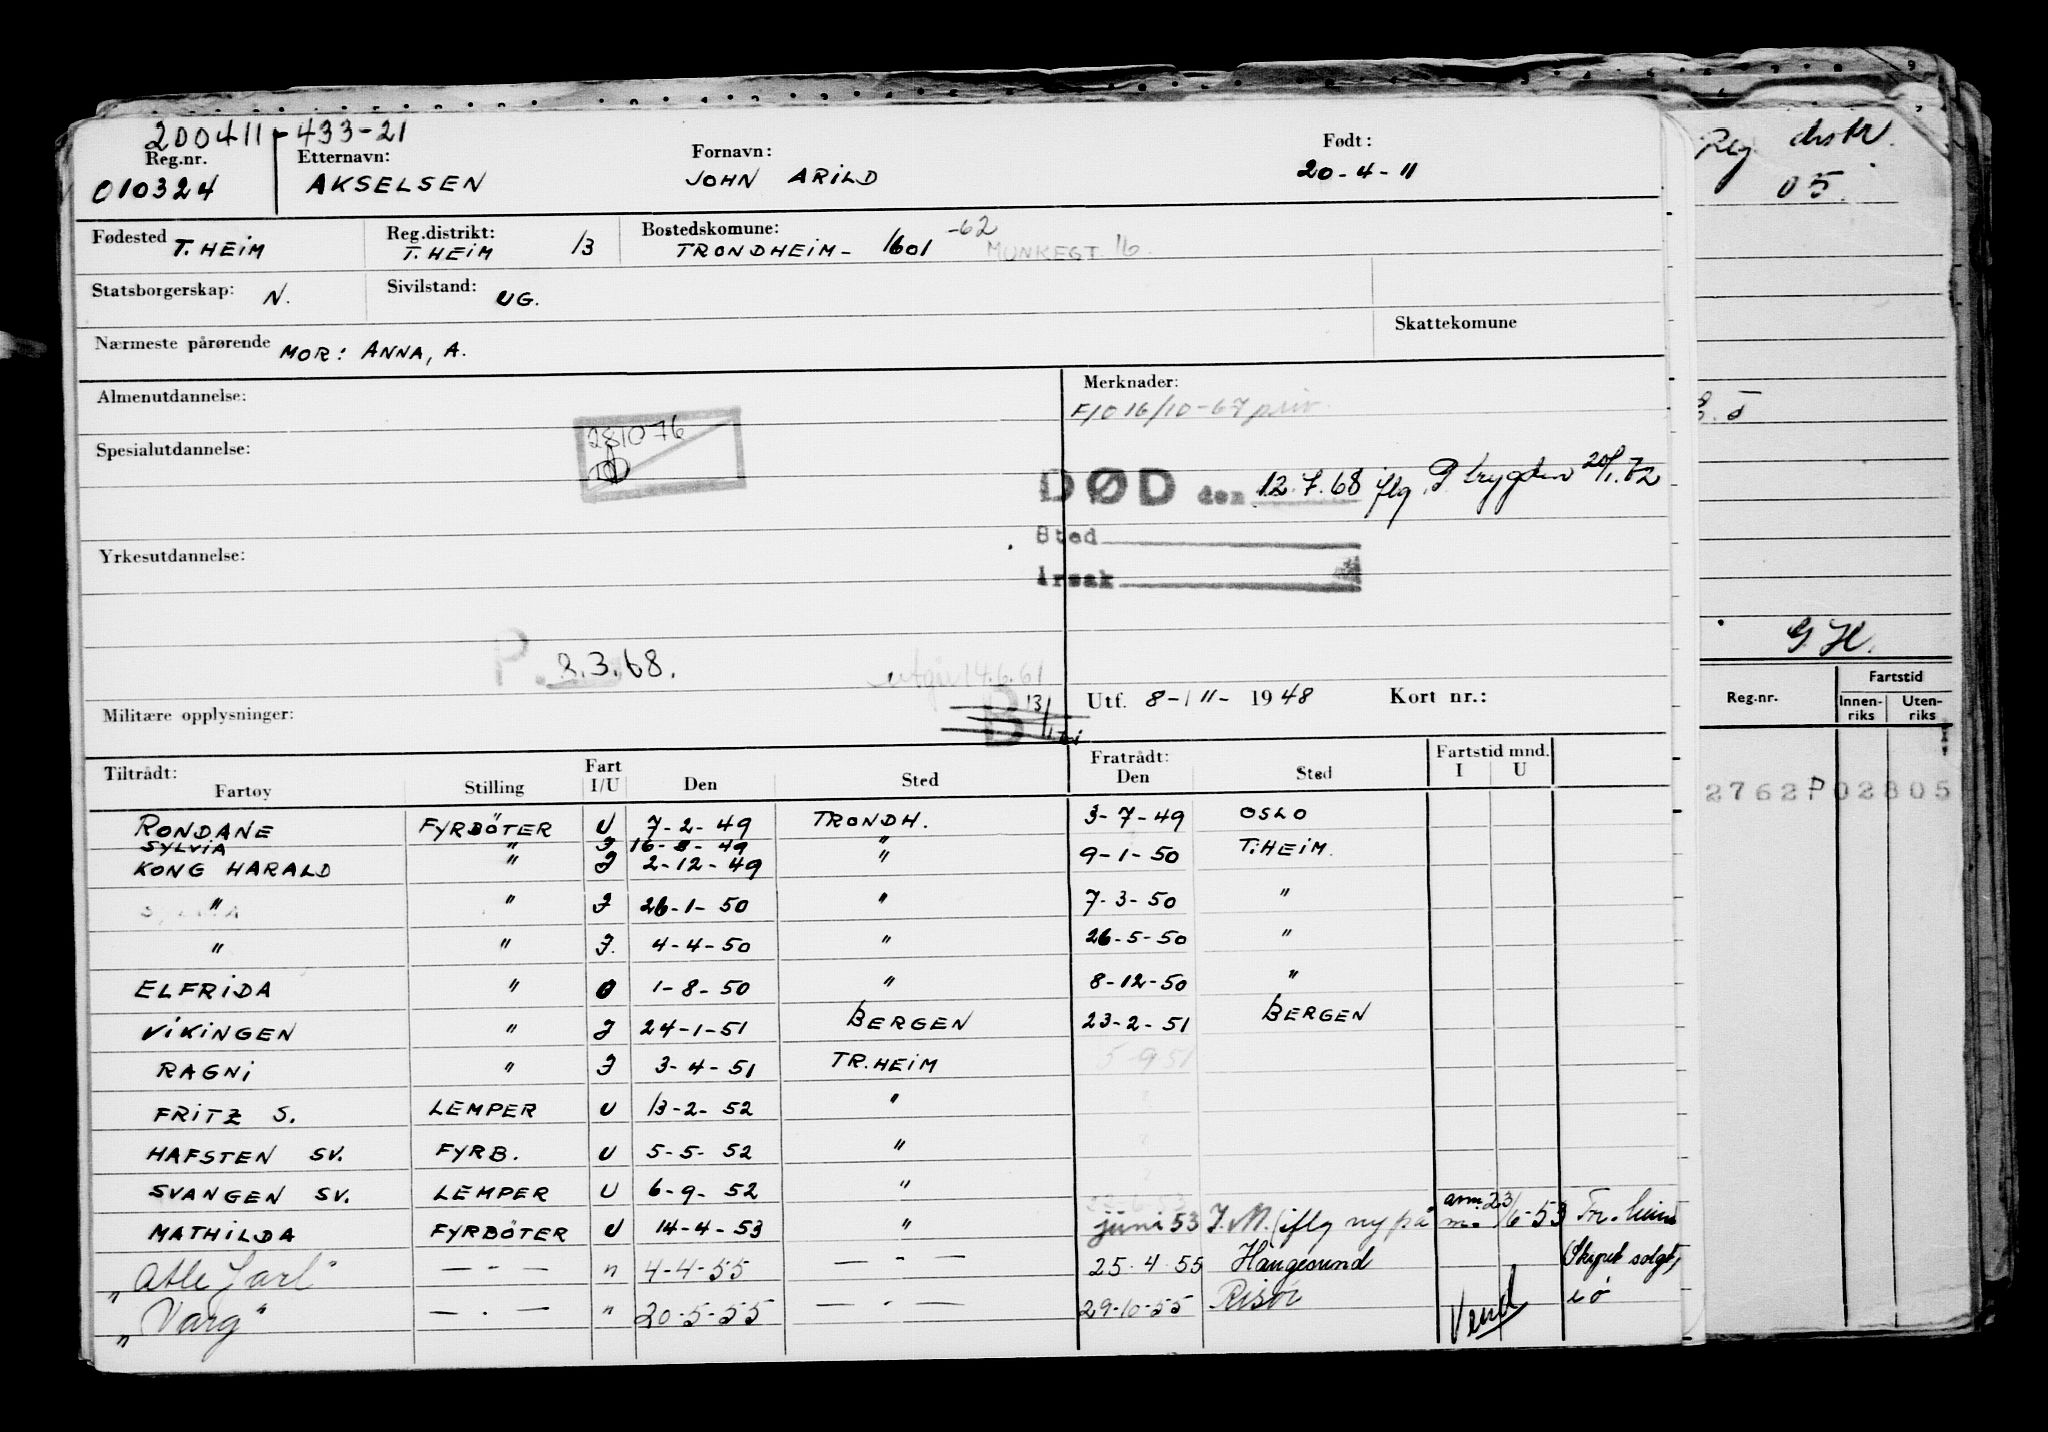 200411-433-21
Reg.nr. Etternavn: Fornavn: Født:
010324 AKSELSEN JOHN ARILD 20-4-11
Fødested T.HEIM Reg.distrikt: T.HEIM 13 Bostedskomune: TRONDHEIM- 1601 -62 MUNKEGT. 16.
Statsborgerskap: N. Sivilstand: UG.
Skattekomune
Nærmeste pårørende MOR: ANNA, A.
Almenutdannelse: Merknader:
F/O 16/10-67 priv.
281076
Spesialutdannelse:
DØD den 12.7.68 iflg. P.trygden 20/1.72
Sted
Årsak
Yrkesutdannelse:
P. 8.3.68.
utgår 14.6.61
B 13/
Militære opplysninger: Utf. 8-11-1948 Kort nr.:
Tiltrådt: Fart Fratrådt: Fartstid mnd.
Fartøy Stilling I/U Den Sted Den Sted I U
RONDANE FYRBÖTER U 7-2-49 TRONDH. 3-7-49 OSLO
SYLVIA " I 16-8-49 "
KONG HARALD " I 2-12-49 " 9-1-50 T.HEIM.
" " I 26-1-50 " 7-3-50 "
" " I. 4-4-50 " 26-5-50 "
ELFRIDA " 1-8-50 " 8-12-50 "
VIKINGEN " I 24-1-51 BERGEN 23-2-51 BERGEN
RAGNI " I 3-4-51 TR.HEIM 5-9 51
FRITZ S. LEMPER U 13-2-52 "
HAFSTEN SV. FYRB. U 5-5-52 "
SVANGEN SV. LEMPER U 6-9-52 "
MATHILDA FYRBÖTER U 14-4-53 " juni 53 I.M. (iflg ny på m. 23/6-53 Tr.heim
"Atle Jarl" — " — " 4-4-55 — " — 25.4.55 Haugesund (Skipet solgt)
"Varg" — " — " 20-5-55 — " — 29-10-55 Risör
Vend
Reg. distr.
05.
G H.
Reg-nr. Fartstid
Innen-riks Uten-riks
2762P02805